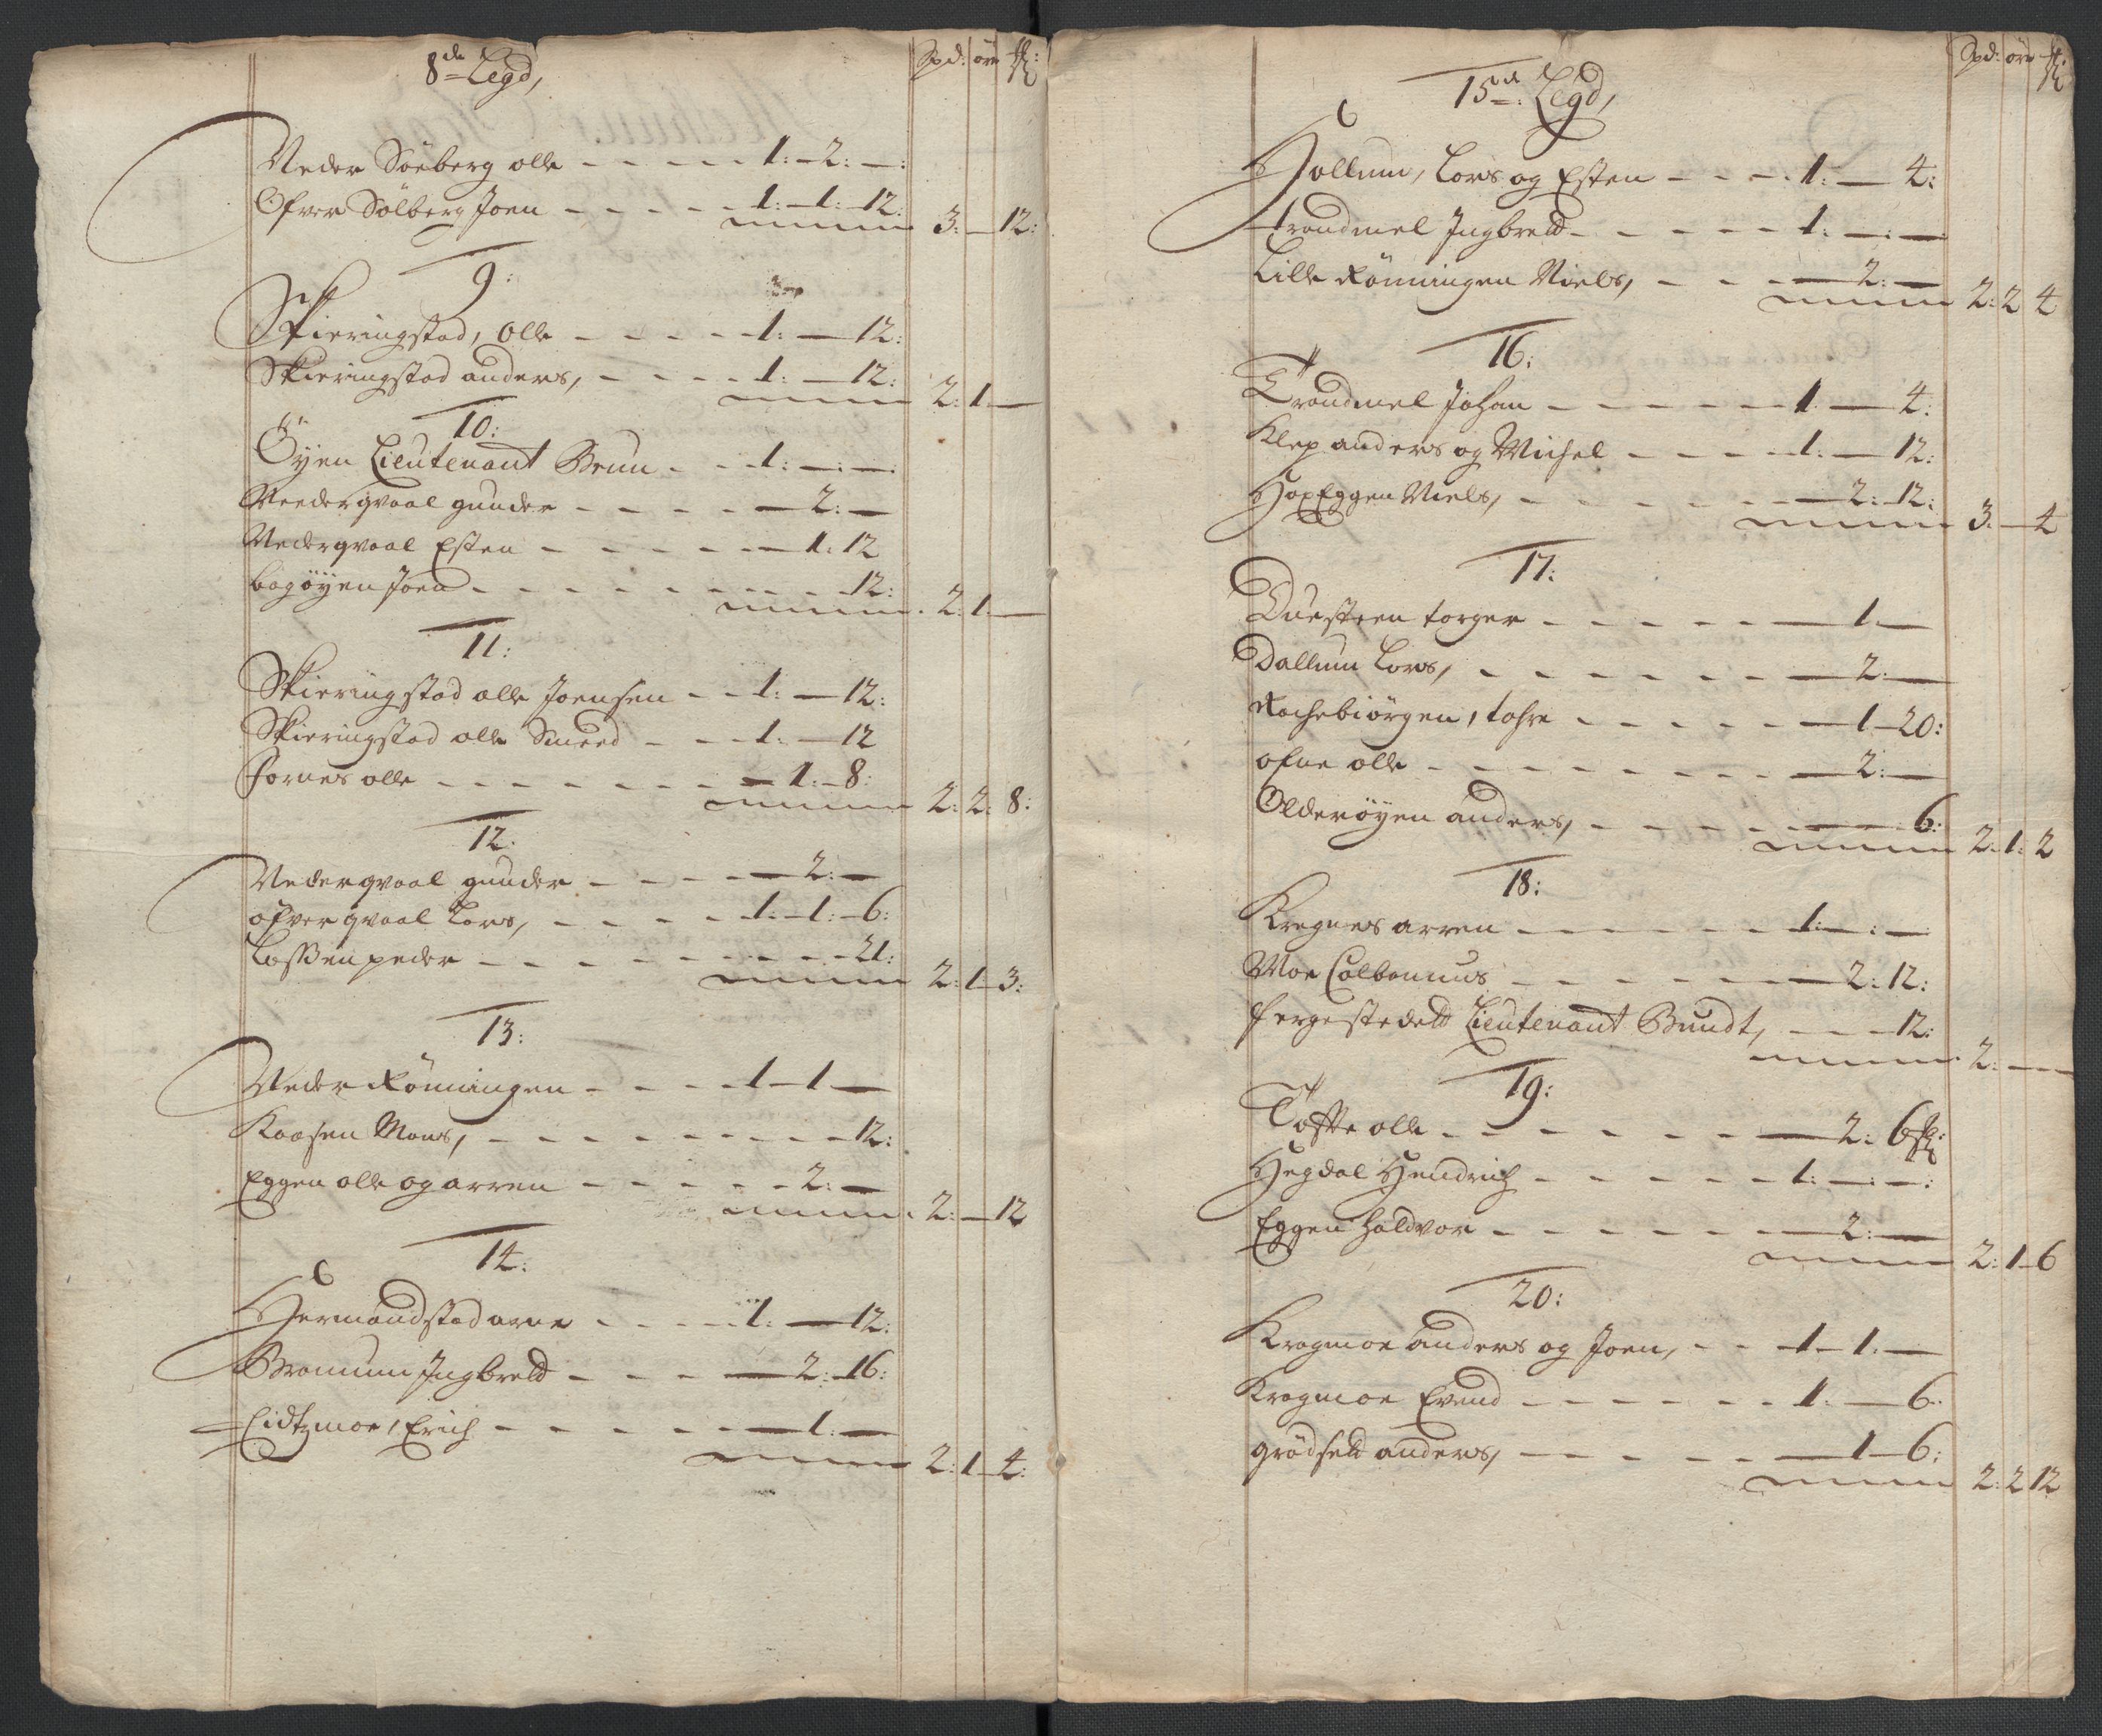 8de Legd, Spd: ore ß:
Neder Söeberg olle - - - - - 1: - 2: - :
Ofver Sölberg Joen - - - - - 1: - 1: 12:
3: — 12:
9:
Skieringstad, Olle - - - - 1: — 12:
Skieringstad anders, - - - - 1: — 12:
2: 1 —
10:
Öyen Lieutenant Brun - - 1: —: —:
Neederqvaal gunder - - - - — 2: —
Nederqvaal Esten - - - - - — 1: 12
bagöyen Joen - - - - - - - - 12:
2: 1 —
11:
Skieringstad olle Joensen - - 1: — 12:
Skieringstad olle Smeed - - 1: — 12
Fornes olle - - - - - - - — 1: — 8:
2: 2: 8:
12:
Nederqvaal gunder - - - - — 2: —
ofver qvaal Lars, - - - - - 1: - 1: - 6:
Lassen peder - - - - - - - - - 21:
2: 1 — 3:
13:
Neder Rönningen - - - - 1 — 1 —
Kaasen Mons, - - - - - - - - - 12:
Eggen olle og arren - - - - - 2: —
2: — 12
14:
Hermandstad arne - - - - 1: — 12:
Bramum Ingbreld - - - - — 2: 16:
Eidtzmoe, Erich - - - - - — 1: —
2: 1 — 4:
15de: Legd, Spd: ore ß
Hollum, Lars og Esten - - - 1: — 4:
trondmel Ingbreld - - - - - 1: —: —
Lille Rönningen Niels, - - — 2: —
2: 2 4
16:
Trondmel Johan - - - - - - 1 — 4:
Klep anders og Michel - - - - 1: — 12:
HopEggen Niels, - - - - - — 2: 12:
3: — 4
17:
Duesteen torger - - - - - — 1: —
Dallum Lars, - - - - - - — 2: —
Rochebiörgen, tohre - - - - — 1 — 20:
ofne olle - - - - - - - — 2: —
Olderöyen anders, - - - - — 6:
2: 1: 2
18:
Kregnes arren - - - - - - 1: —: —
Moe Colbennus - - - - - — 2: 12:
fergestedeld Lieutenant Bundt, - - - 12:
2: — —
19:
Tofte olle - - - - - — 2: 6ß:
Hegdal Hendrich - - - - - 1: —: —:
Eggen haldvor - - - - - — 2: —
2: 1 — 6
20:
Kragmoe anders og Joen, - - 1 — 1: —
Kragmoe Evend - - - - - - 1: — 6:
grödseld anders, - - - - — 1 — 6:
2: 2 12